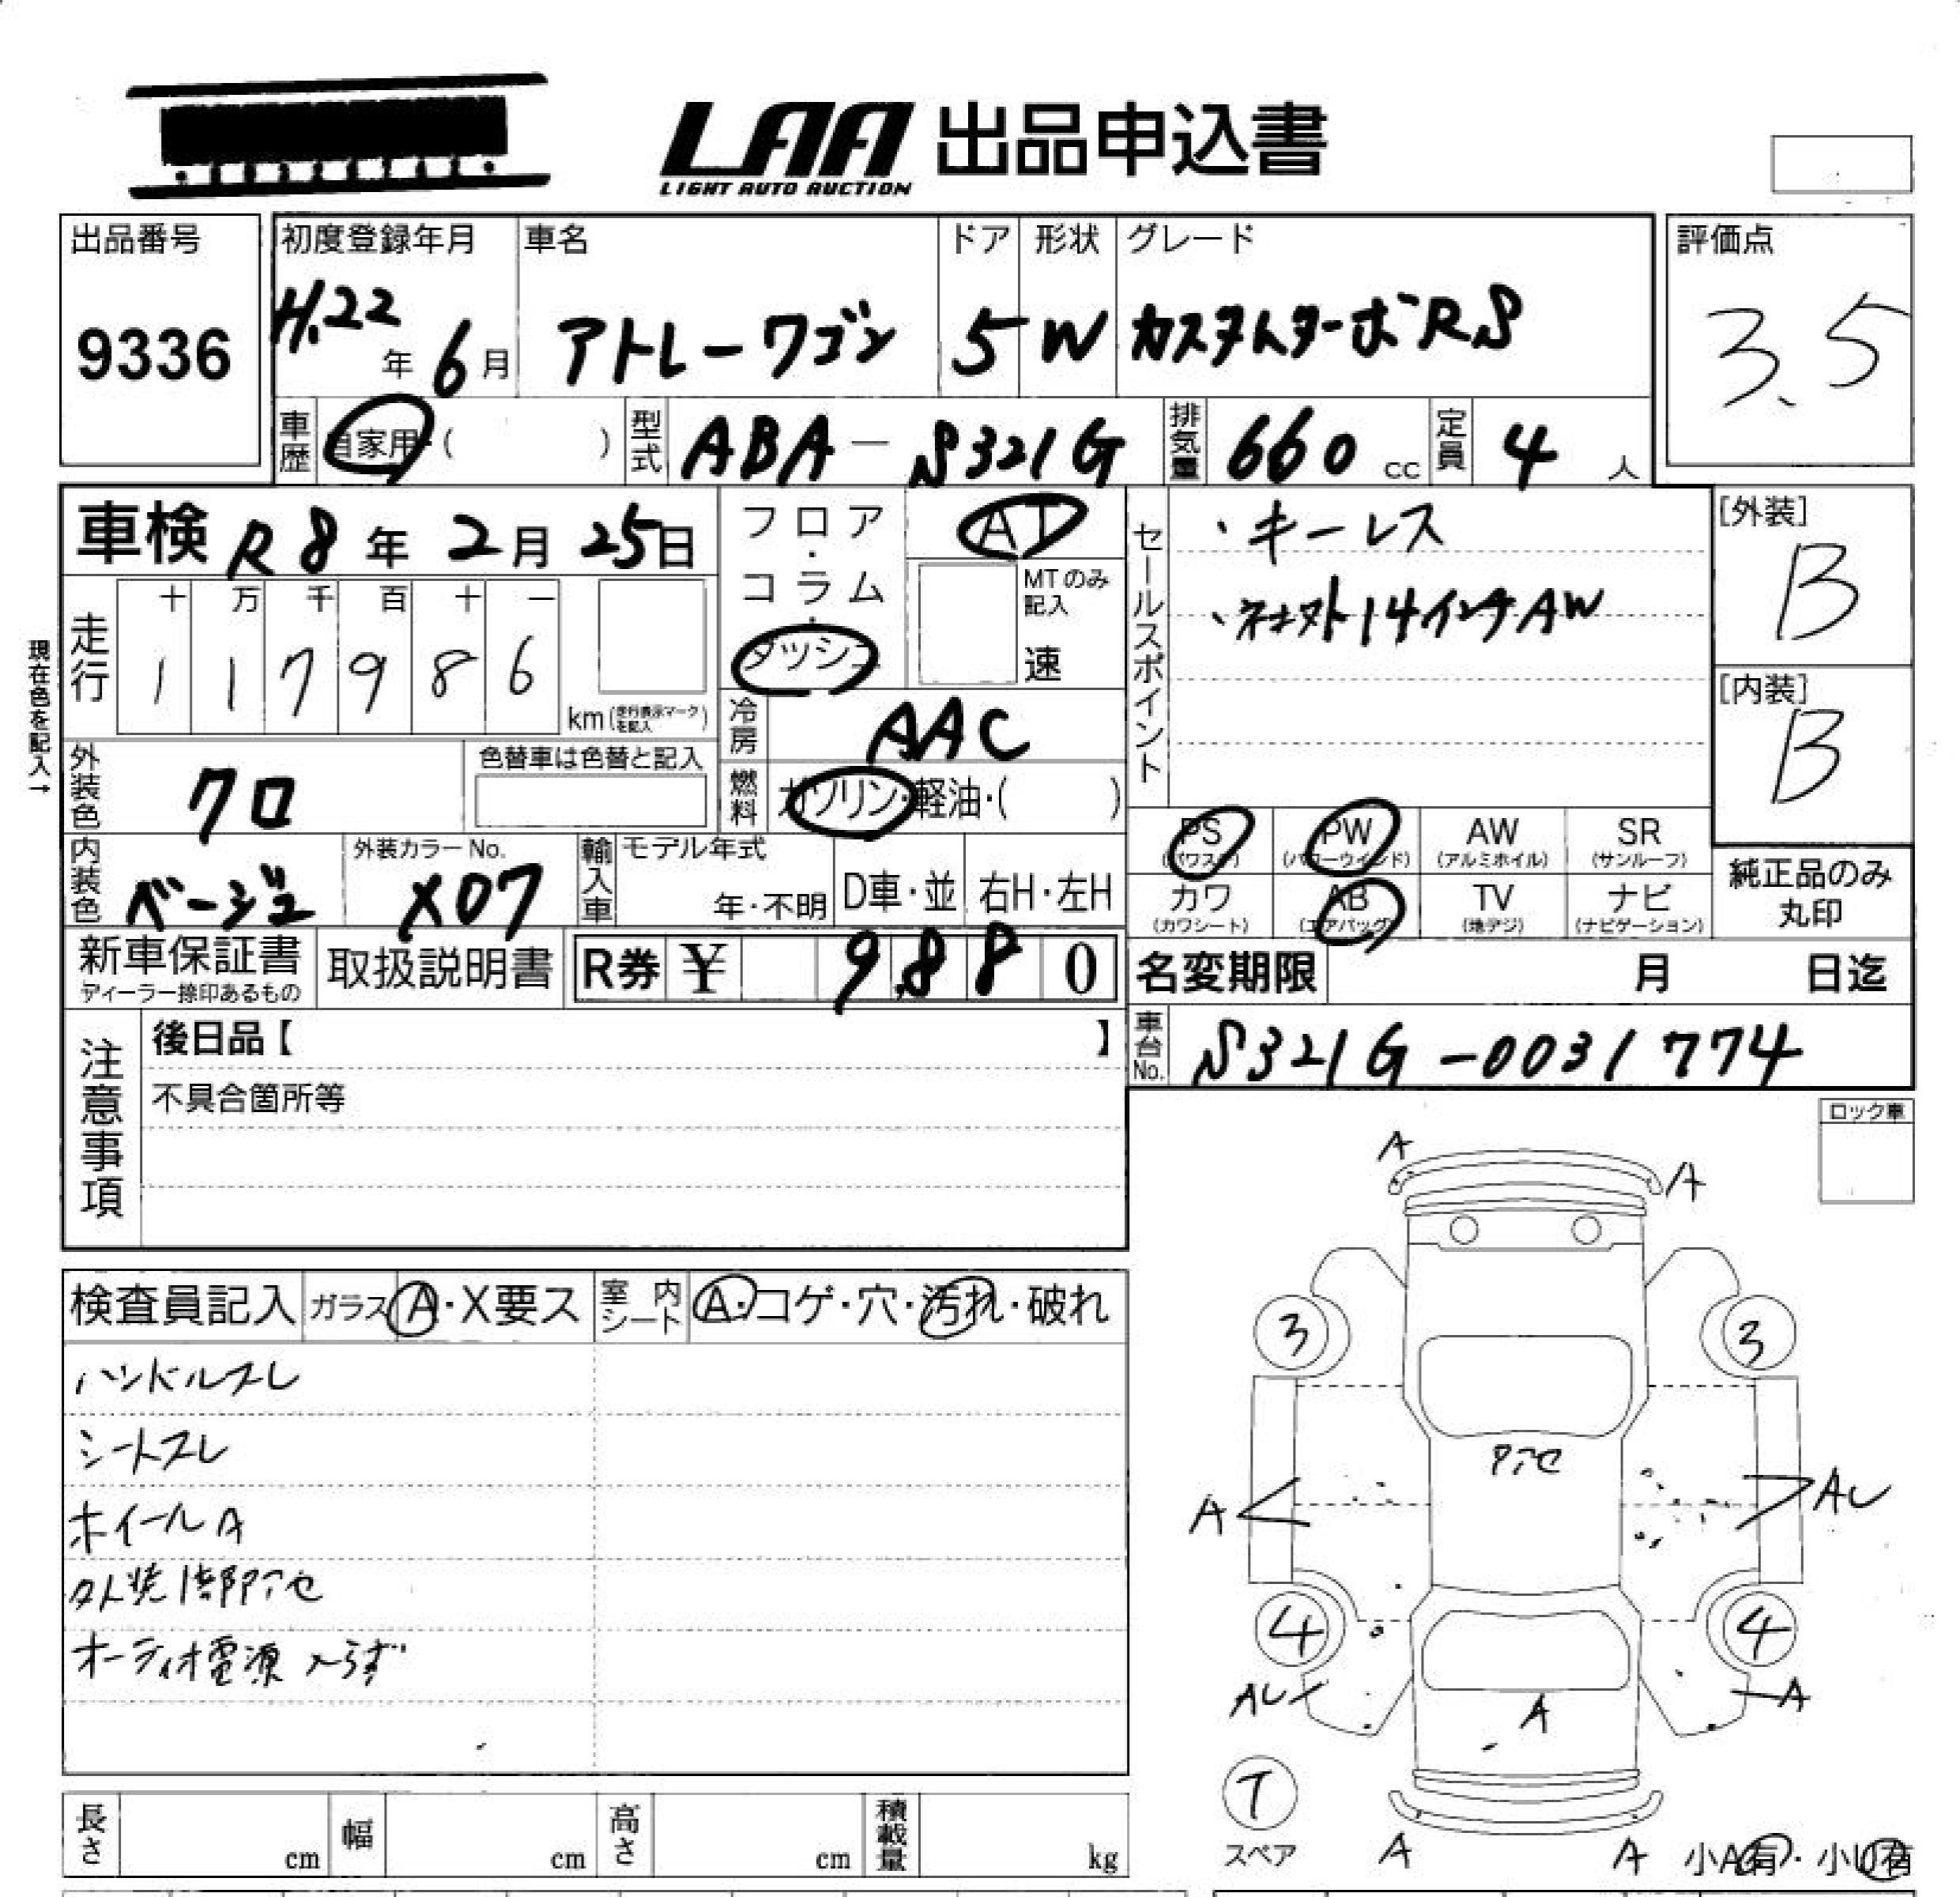 LAA 出品申込書
LIGHT AUTO AUCTION
出品番号
9336
初度登録年月
H.22年 6月
車名
アトレーワゴン
ドア
5
形状
W
グレード
カスタムターボRS
評価点
3.5
車歴 自家用・( )
型式 ABA-S321G
排気量 660 cc
定員 4 人
車検 R8年 2月 25日
フロア・コラム・ダッシュ
AT
MTのみ記入
速
セールスポイント
・キーレス
・社外14インチAW
[外装]
B
[内装]
B
現在色を記入→
走行
十 万 千 百 十 一
1 1 7 9 8 6
km(走行表示マークを記入)
冷房 AAC
燃料 ガソリン・軽油・( )
外装色 クロ
色替車は色替と記入
内装色 ベージュ
外装カラーNo.
X07
輸入車
モデル年式
年・不明
D車・並
右H・左H
PS
(パワステ)
PW
(パワーウインド)
AW
(アルミホイル)
SR
(サンルーフ)
カワ
(カワシート)
AB
(エアバッグ)
TV
(地デジ)
ナビ
(ナビゲーション)
純正品のみ
丸印
新車保証書
ディーラー捺印あるもの
取扱説明書
R券 ¥ 9,880
名変期限 月 日迄
車台No. S321G-0031774
注意事項
後日品【 】
不具合箇所等
ロック車
検査員記入
ガラス A・X要ス
室内シート A・コゲ・穴・汚れ・破れ
ハンドルスレ
シートスレ
ホイールA
外装1部アセ
オーディオ電源入らず
A
A
3
3
アセ
A
AU
4
4
AU
A
A
T
スペア
A
A
小A有・小U有
長さ cm
幅 cm
高さ cm
積載量 kg